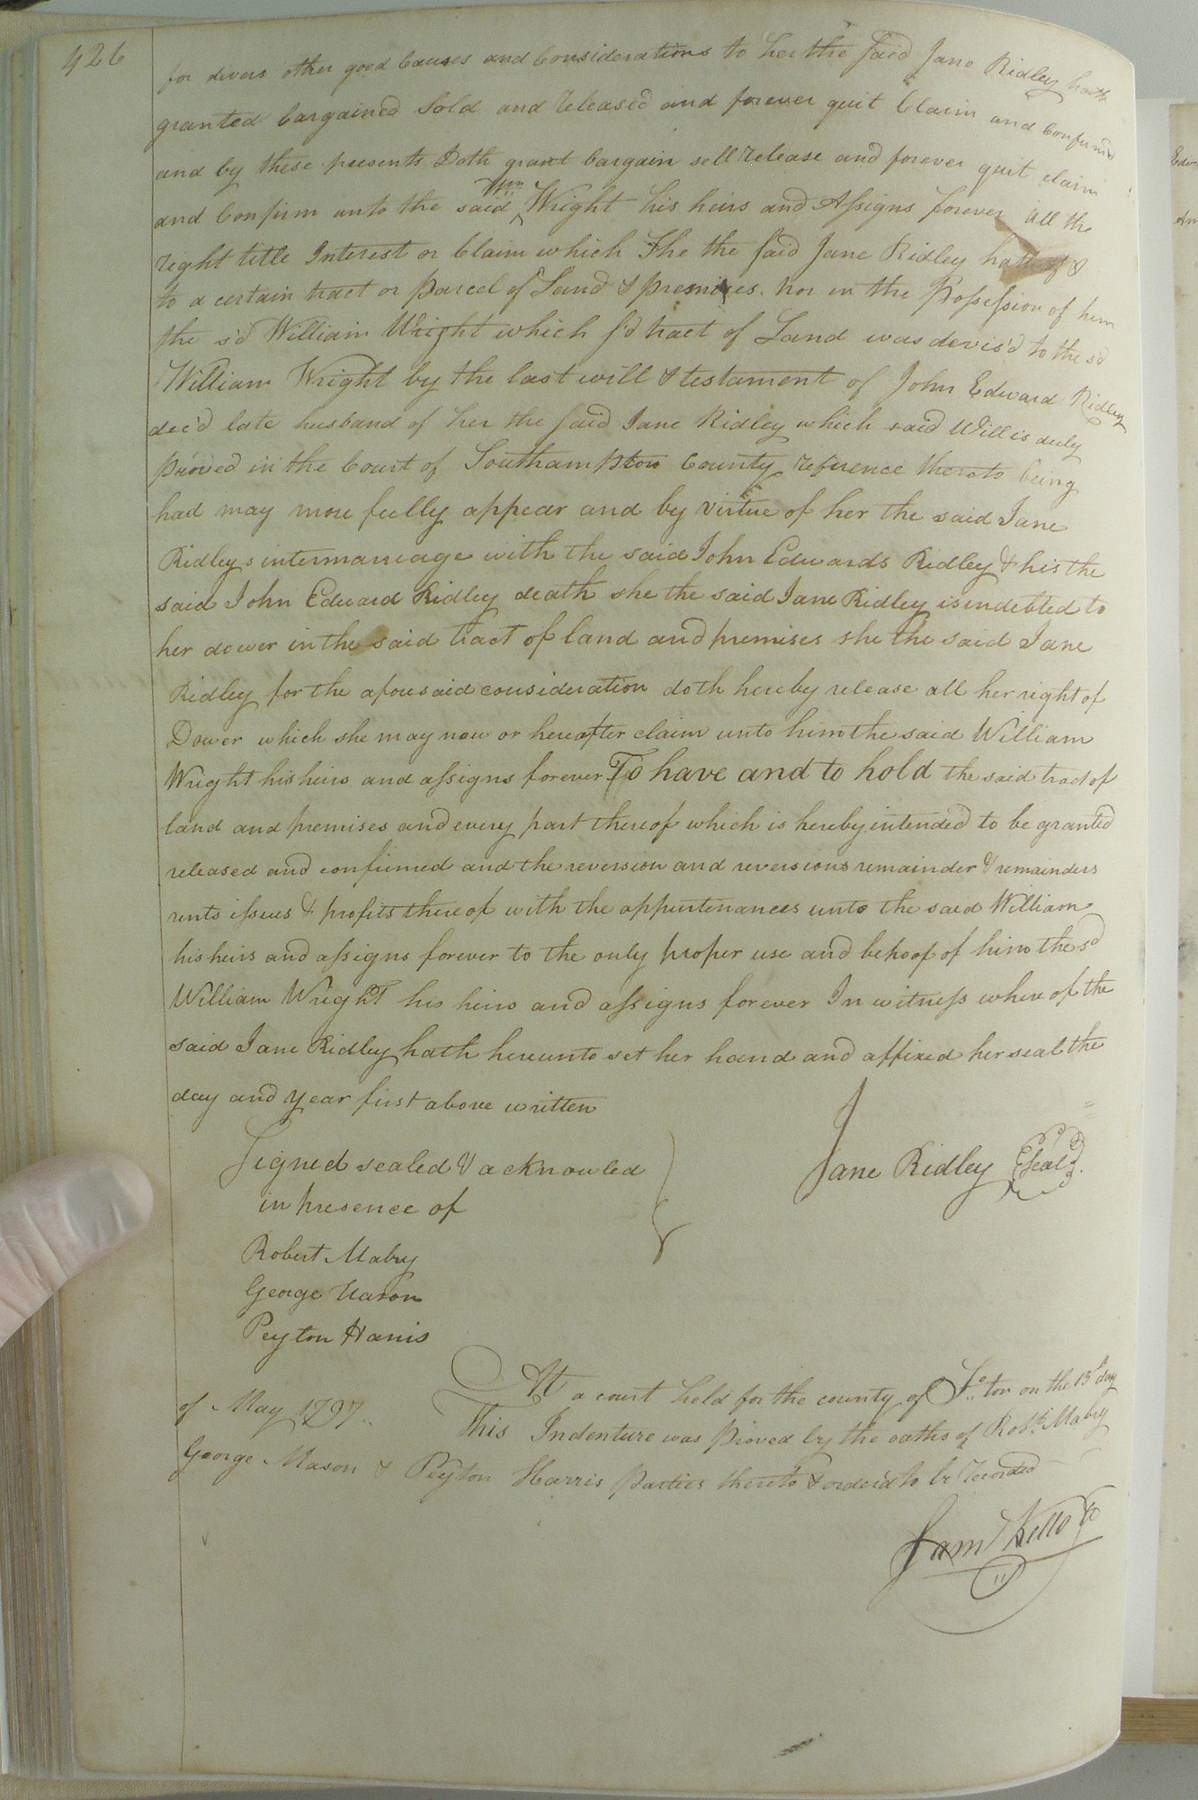 426
for divers other good Causes and Considerations to her the said Jane Ridley hath
granted bargained Sold and released and forever quit Claim and Confirmd
and by these presents Doth grant bargain sell release and forever quit claim
and Confirm unto the said Wm Wright his heirs and Assigns forever all the
right title Interest or Claim which She the said Jane Ridley hath of &
to a certain tract or parcel of Land & premises. Nor in the Possession of him
the sd William Wright which sd tract of Land was devis'd to the sd
William Wright by the last will & testament of John Edward Ridley
dec'd late husband of her the said Jane Ridley which said Will is duly
proved in the Court of Southampton County reference thereto being
had may more fully appear and by virtue of her the said Jane
Ridleys intermarriage with the said John Edwards Ridley & his the
said John Edward Ridley death she the said Jane Ridley is indebted to
her dower in the said tract of land and premises she the said Jane
Ridley for the aforesaid consideration doth hereby release all her right of
Dower which she may now or hereafter claim unto him the said William
Wright his heirs and assigns forever To have and to hold the said tract of
land and premises and every part thereof which is hereby intended to be granted
released and confirmed and the reversion and reversions remainder & remainders
rents issues & profits thereof with the appurtenances unto the said William
his heirs and assigns forever to the only proper use and behoof of him the sd
William Wright his heirs and assigns forever In witness where of the
said Jane Ridley hath hereunto set her hand and affixed her seal the
day and year first above written
Signed sealed & acknowled
in presence of
Jane Ridley Seal
Robert Mabry
George Mason
Peyton Harris
At a court held for the county of So.ton on the 15th day
of May 1797. This Indenture was proved by the oaths of Robt. Mabry
George Mason & Peyton Harris parties thereto & orderd to be recorded
Saml Kello CC